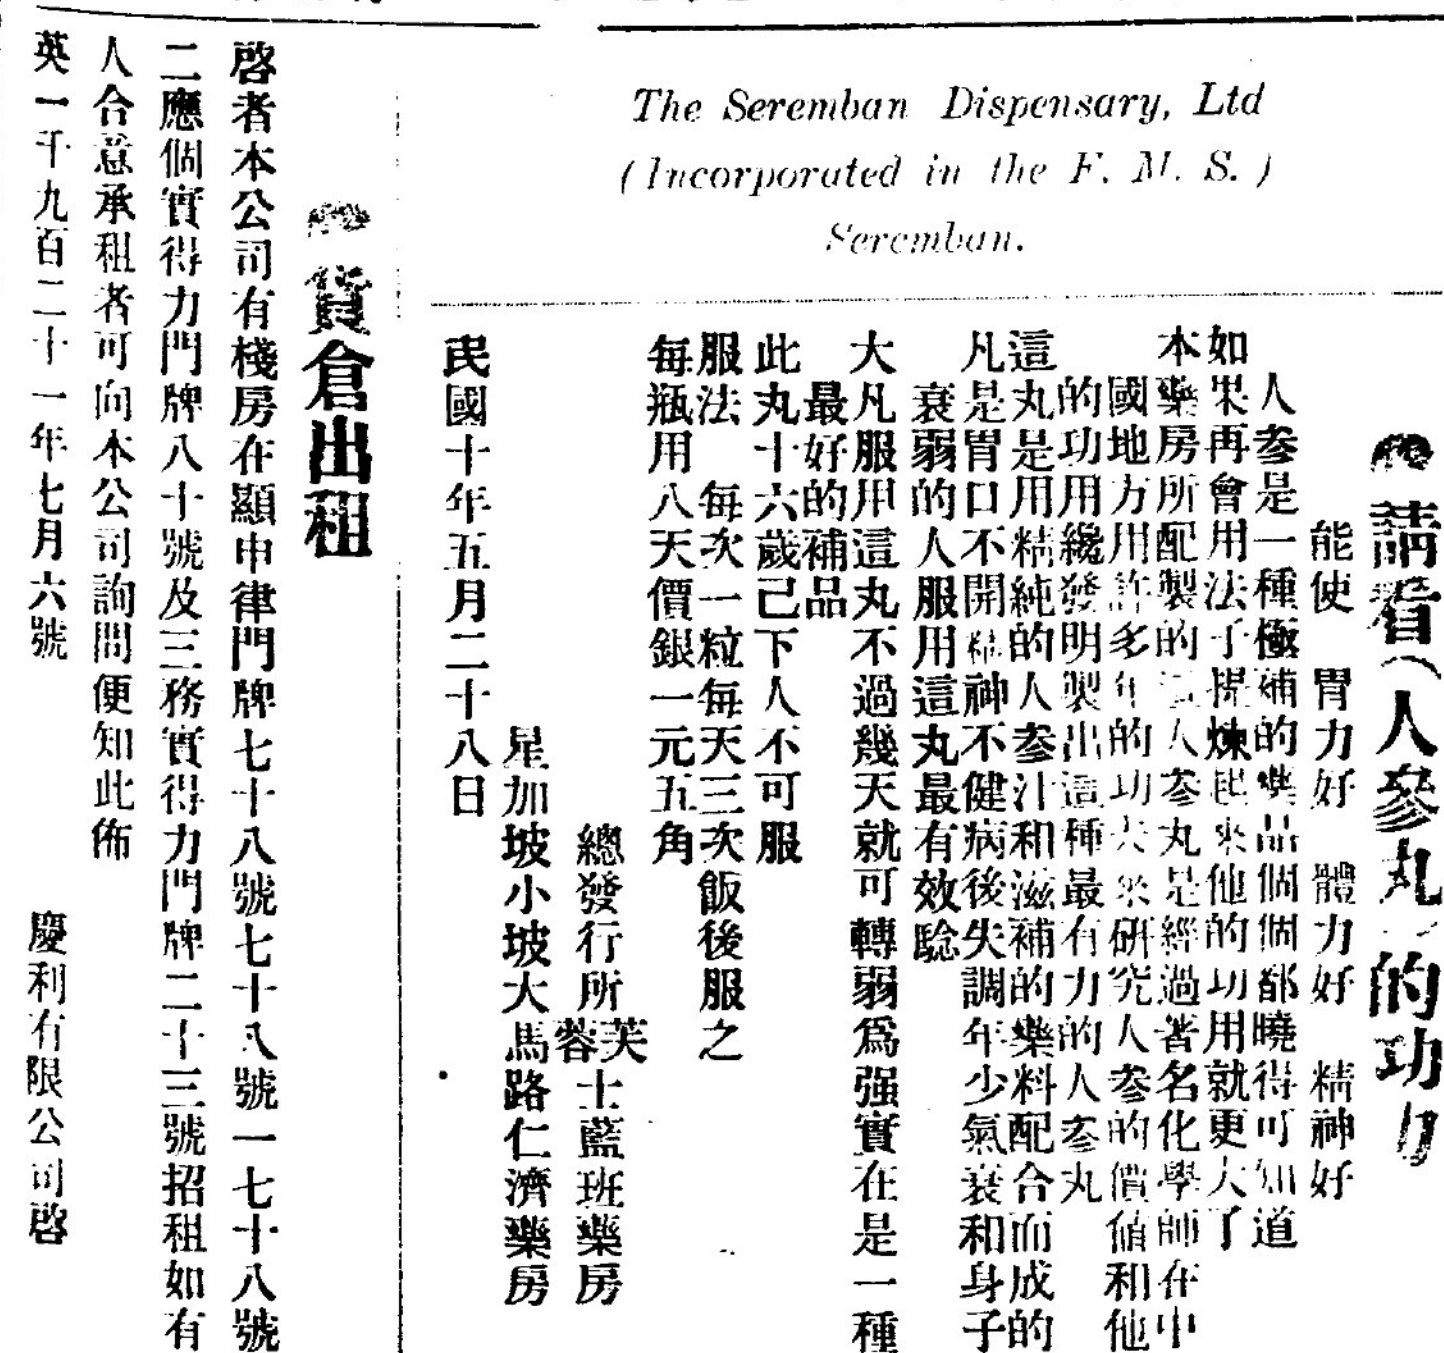 The Seremban Dispensary, Ltd
(Incorporated in the F. M. S.)
Seremban.
請看(人參丸)的功力
能使 胃力好 體力好 精神好
人參是一種極補的藥品個個都曉得可知道
如果再會用法子提煉起來他的功用就更大了
本藥房所配製的這人參丸是經過著名化學師在中
國地方用許多年的功夫來研究人參的價值和他
的功用纔發明製出這種最有力的人參丸
這丸是用精純的人參汁和滋補的藥料配合而成的
凡是胃口不開精神不健病後失調年少氣衰和身子
衰弱的人服用這丸最有效騐
大凡服用這丸不過幾天就可轉弱爲强實在是一種
最好的補品
此丸十六歲己下人不可服
服法 每次一粒每天三次飯後服之
每瓶用八天價銀一元五角
總發行所芙蓉士藍班藥房
星加坡小坡大馬路仁濟藥房
民國十年五月二十八日
貨倉出租
啓者本公司有棧房在顯申律門牌七十八號七十八號一七十八號
二應個實得力門牌八十號及三務實得力門牌二十三號招租如有
人合意承租者可向本公司詢問便知此佈
英一千九百二十一年七月六號 慶利有限公司啓